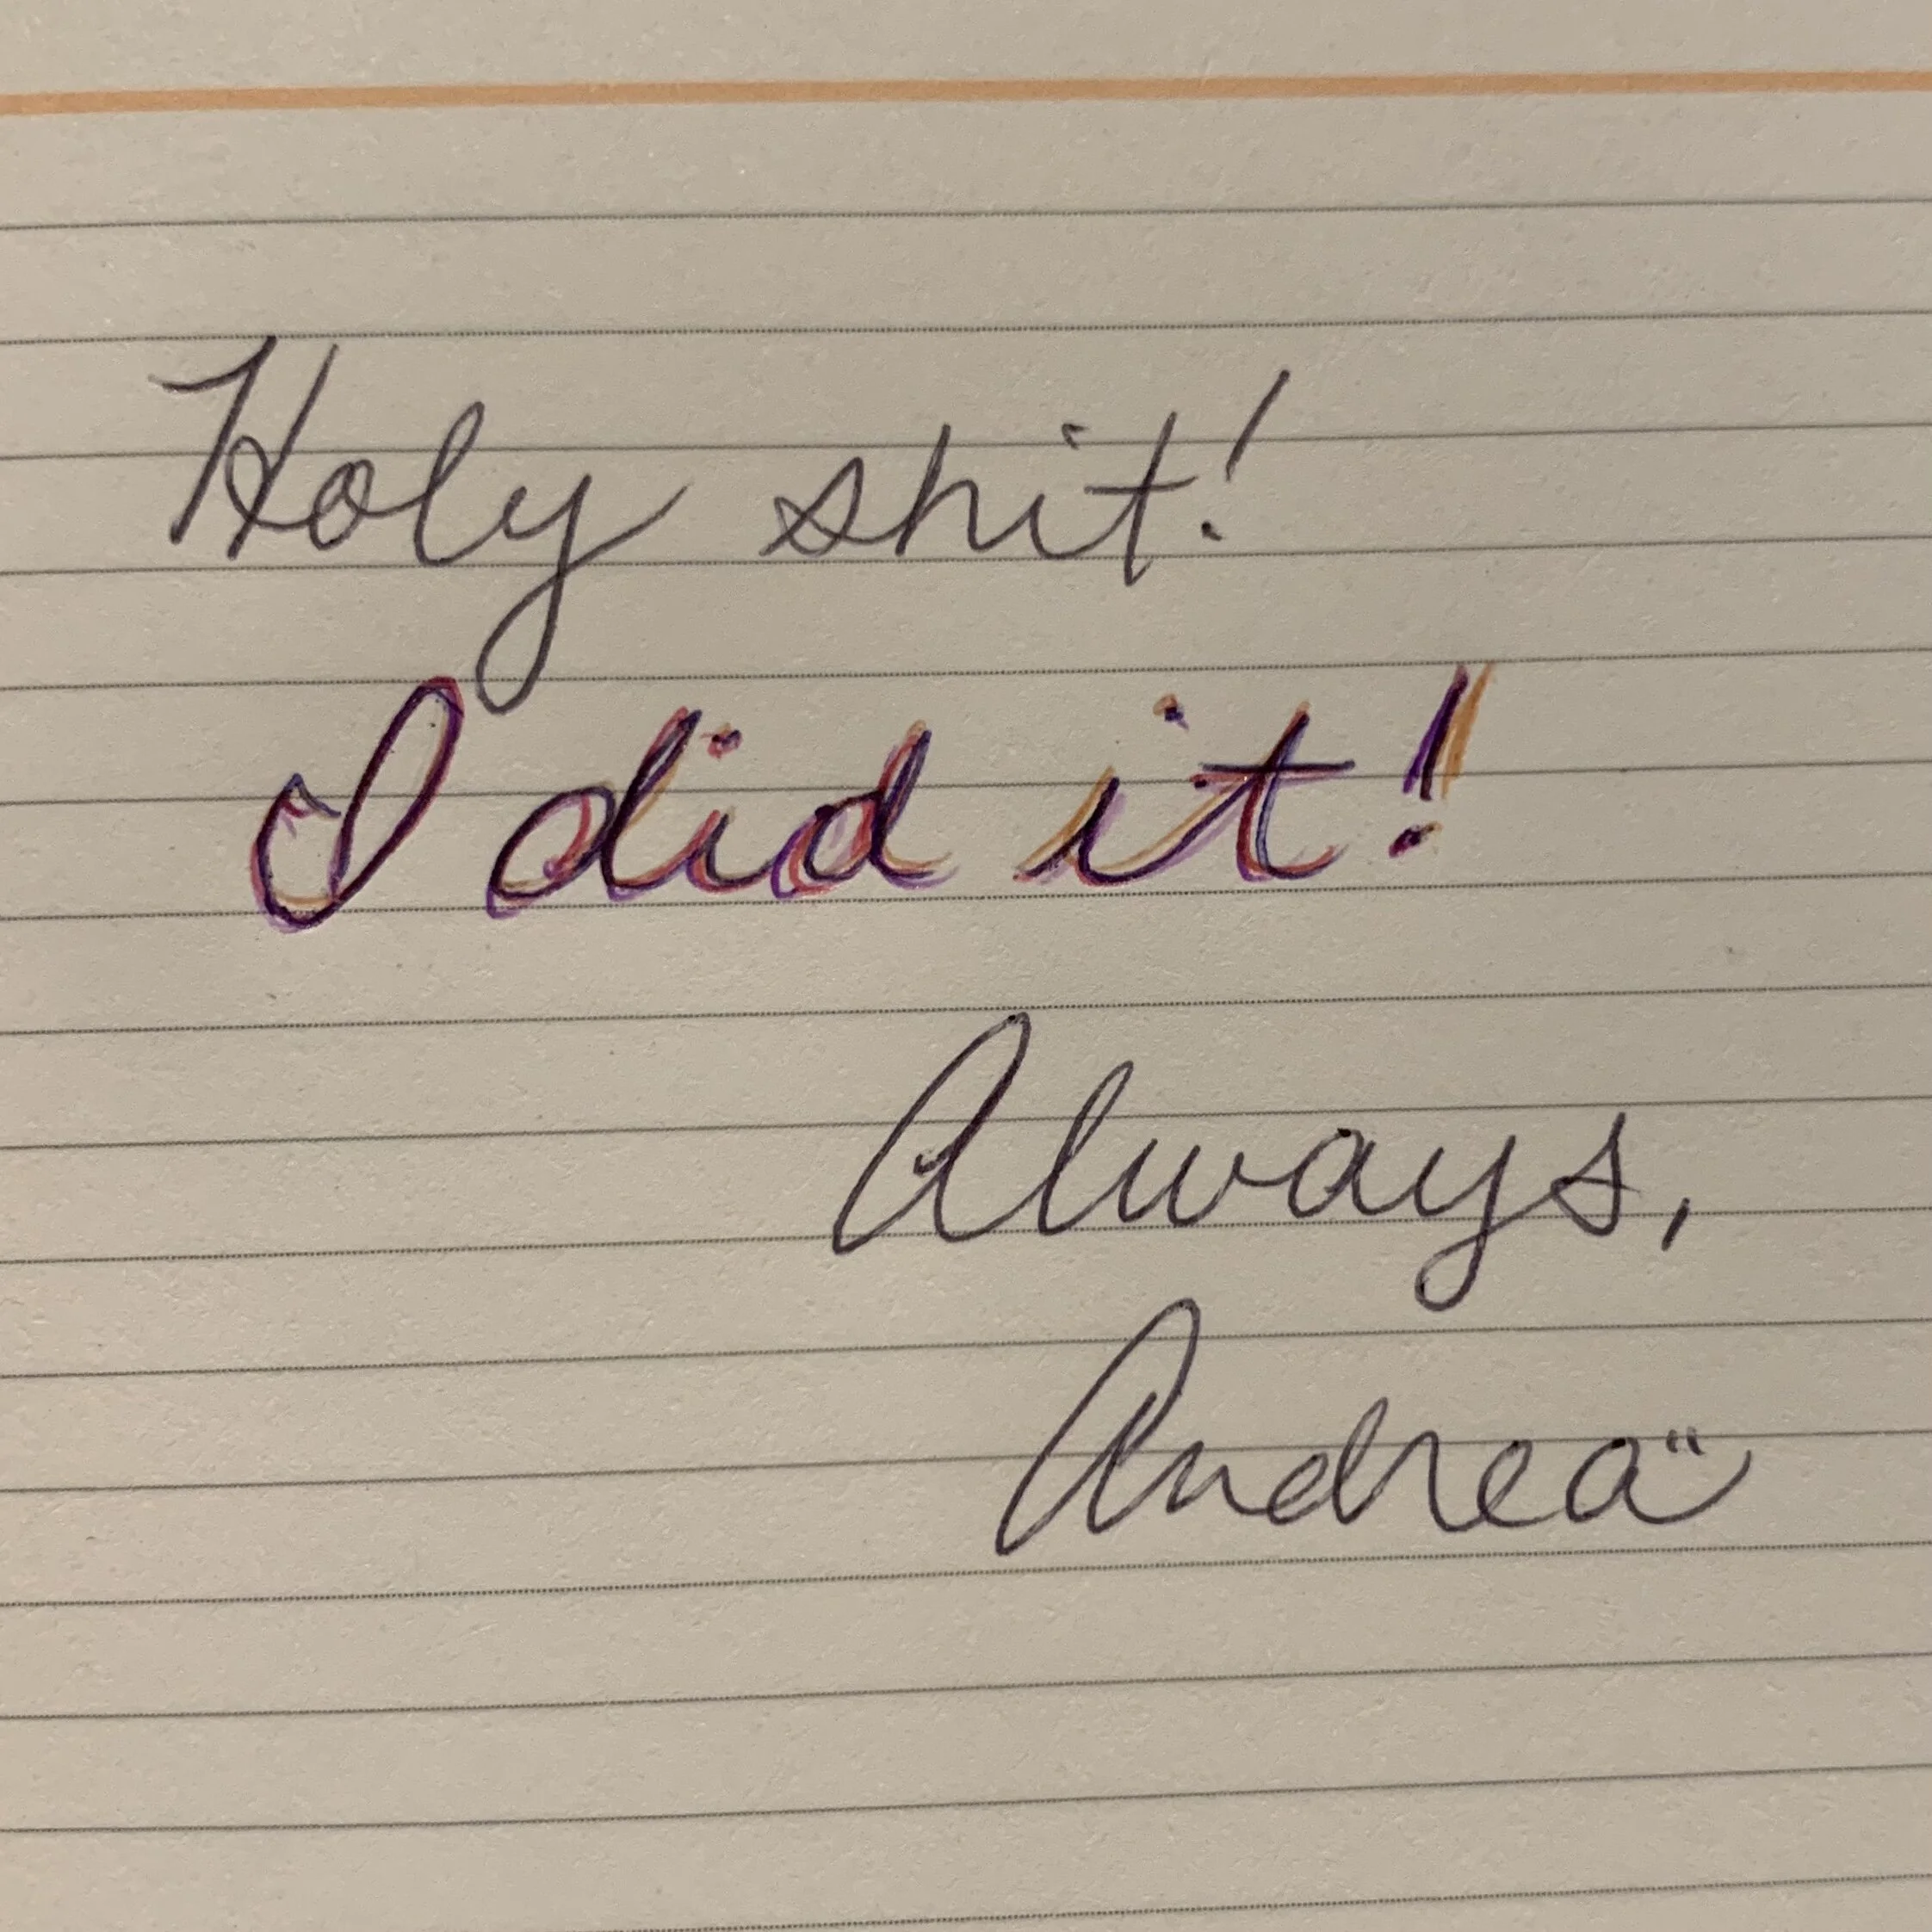 Holy shit!
I did it!
Always,
Andrea